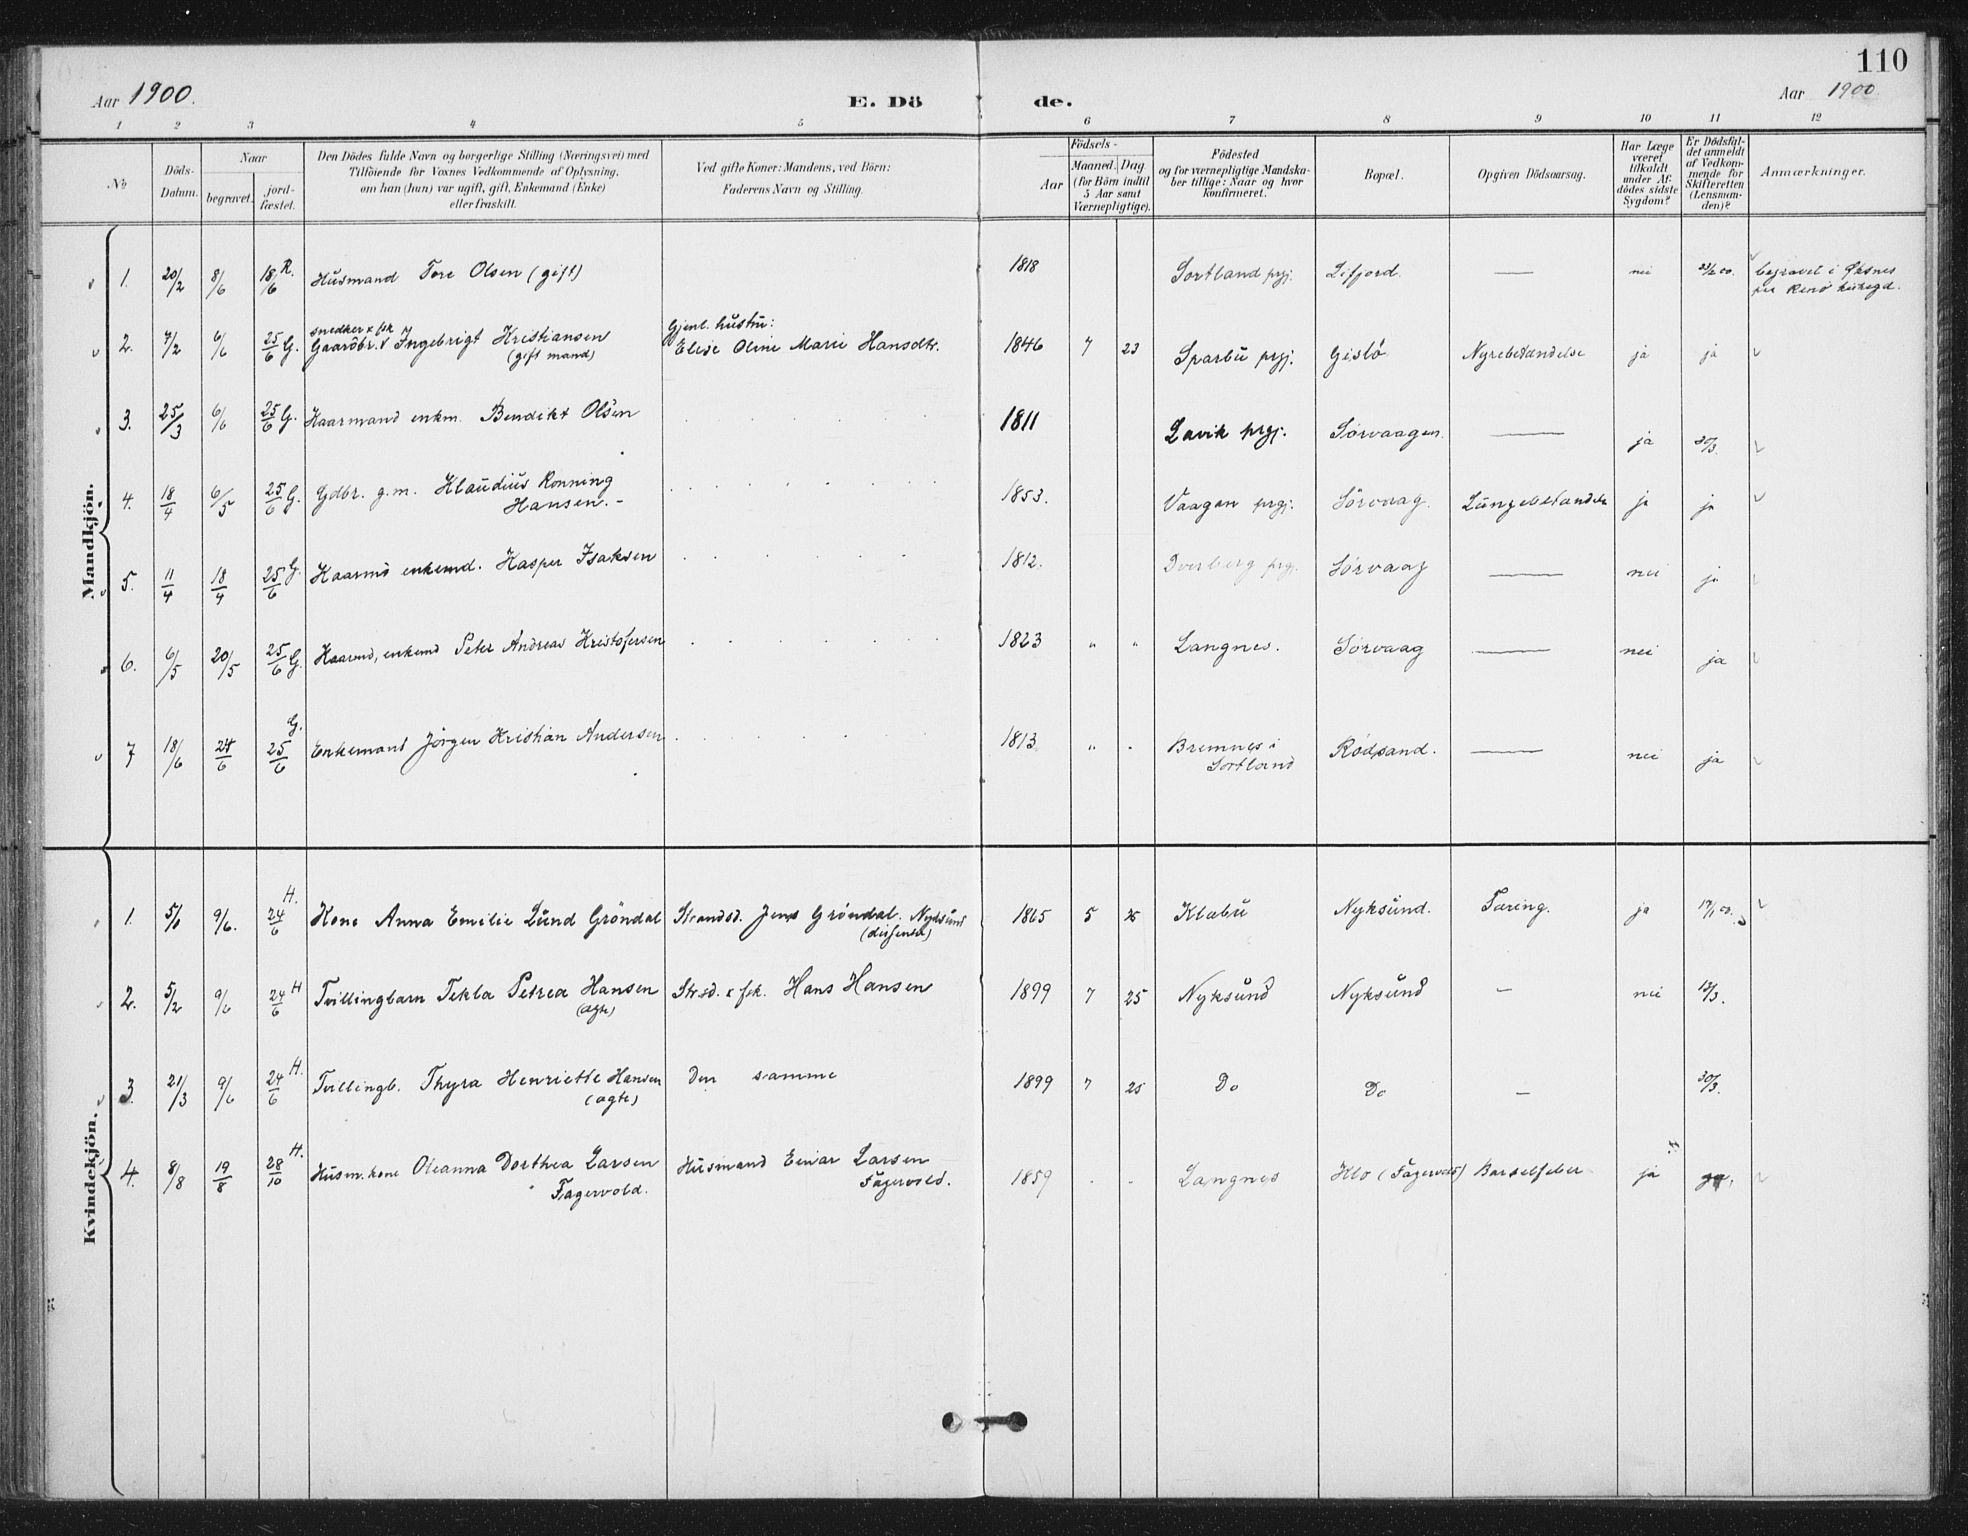 110
Aar 1900.
E. Döde.
Aar 1900
1 2 3 4 5 6 7 8 9 10 11 12
№
Döds-Datum.
Naar
begravet.
jord-fæstet.
Den Dödes fulde Navn og borgerlige Stilling (Næringsvei) med
Tilföiende for Voxnes Vedkommende af Oplysning,
om han (hun) var ugift, gift, Enkemand (Enke)
eller fraskilt.
Ved gifte Koner: Mandens, ved Börn:
Faderens Navn og Stilling.
Födsels-
Aar
Maaned. Dag
(for Börn indtil
5 Aar samt
Værnepligtige).
Födested
og for værnepligtige Mandska-
ber tillige: Naar og hvor
konfirmeret.
Bopæl.
Opgiven Dödsaarsag.
Har Læge
været
tilkaldt
under Af-
dödes sidste
Sygdom?
Er Dödsfal-
det anmeldt
af Vedkom-
mende for
Skifteretten
(Lensman-
den)?
Anmærkninger.
Mandkjön.
1. 20/2 8/6 18/6 R. Husmand Tore Olsen (gift) 1818 Sortland prgj. Lifjord. — nei 23/2 00. begravet i Øksnes
2. 7/2 6/6 25/6 G. snedker x fsk Gaardbr. Ingebrigt Kristiansen (gift mand) Gjenl. hustru: Elise Oline Marie Hansdtr. 1846 7 23 Sparbu prgj. Gislö Nyrebetændelse ja ja
3. 25/3 6/6 25/6 G. Kaarmand enkm. Bendikt Olsen 1811 Lavik prgj. Sörvaagen. — ja 30/3.
4. 18/4 6/5 25/6 G. Gdbr. g.m. Klaudius Rönning Hansen. - 1853. Vaagan prgj. Sörvaag. Lungebetændelse ja ja
5. 11/4 18/4 25/6 G. Kaarmd enkemd. Kasper Isaksen 1812. Dverberg prgj. Sörvaag — nei ja
6. 6/5 20/5 25/6 G. Kaarmd, enkemd Peter Andreas Kristofersen 1823 " " Langnes. Sörvaag — nei ja
7 18/6 24/6 25/6 G. Enkemand Jörgen Kristian Andersen 1813. " " Bremnes i Sortland Rödsand. — nei ja
Kvindekjön.
1. 5/1 9/6. 24/6 H. Kone Anna Emilie Lund Gröndal Strandsd. Jens Gröndal. Nyksund 1865 5 Klæbu Nyksund. Tæring. ja 17/1 00.
2. 5/2 9/6 24/6 H Tvillingbarn Tekla Petrea Hansen (ægte) Strsd. x fsk. Hans Hansen 1899 7 25 Nyksund Nyksund — nei 13/3.
3. 21/3 9/6 24/6 H. Tvillingb. Thyra Henriette Hansen (ægte) Den samme 1899 7 25 Do Do — 30/3.
4. 8/8 19/8 28/10 H. Husm.kone Oleanna Dorthea Larsen Fagervold. Husmand Einar Larsen Fagervold. 1859 Langnes Klo (Fagervold) Barselfeber ja